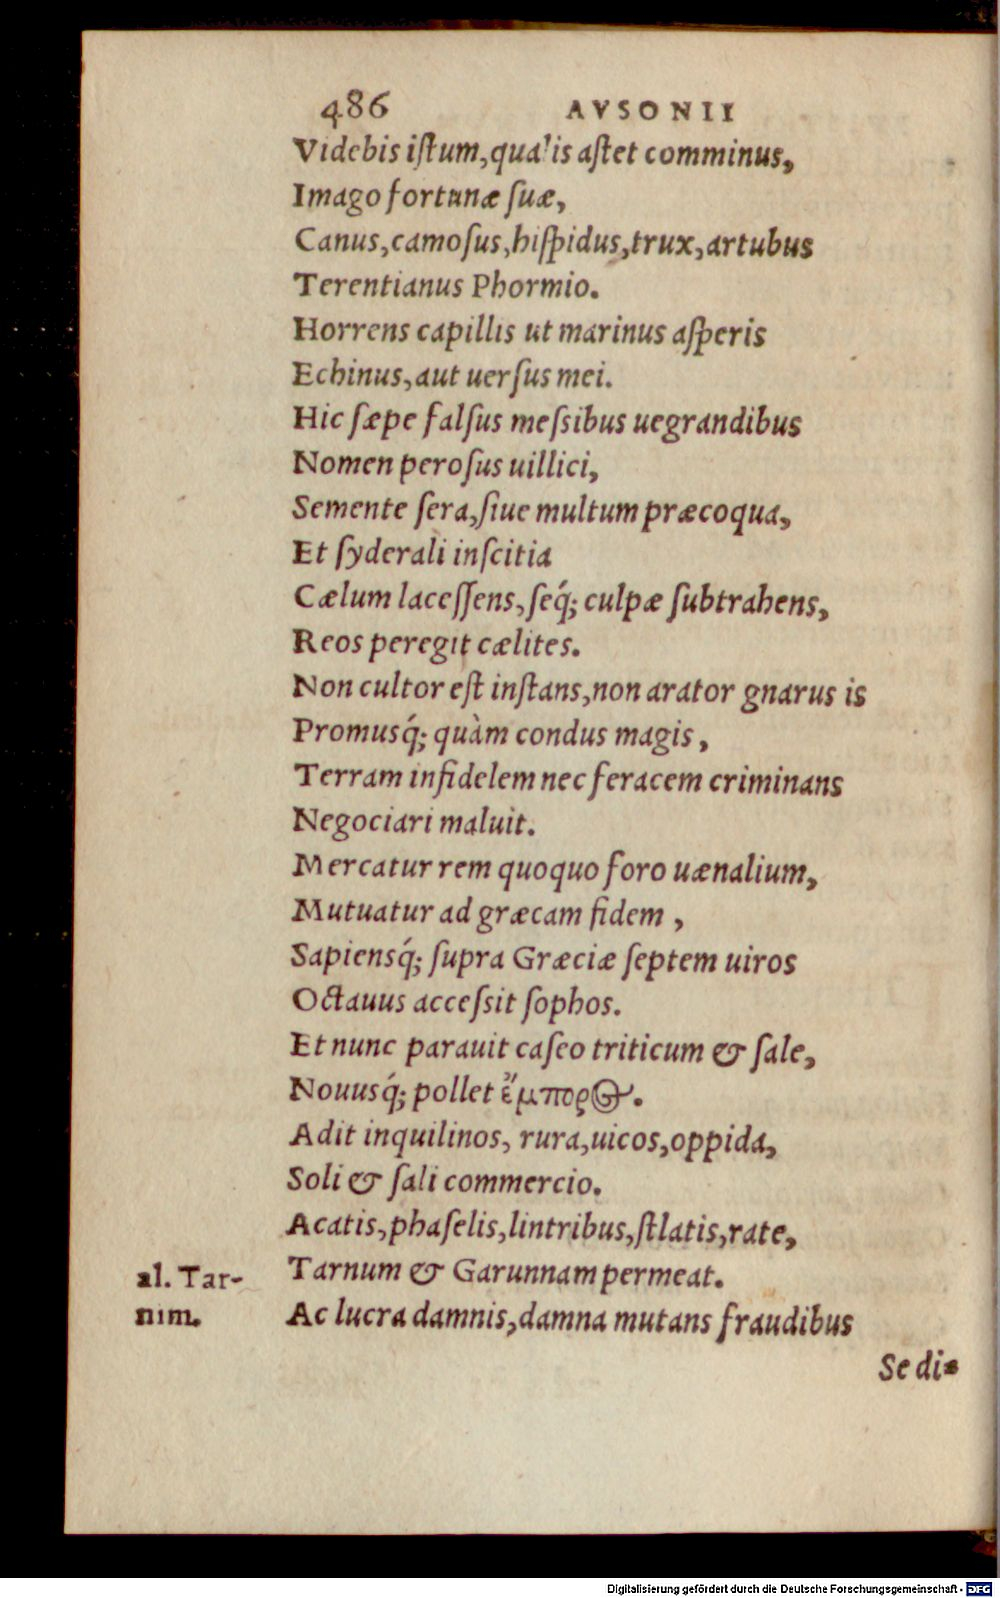 486 AVSONII
Videbis iſtum, qualis aſtet comminus,
Imago fortunæ ſuæ,
Canus, camoſus, hiſpidus, trux, artubus
Terentianus Phormio.
Horrens capillis ut marinus aſperis
Echinus, aut uerſus mei.
Hic ſæpe falſus meſsibus uegrandibus
Nomen peroſus uillici,
Semente ſera, ſiue multum præcoqua,
Et ſyderali inſcitia
Cælum laceſſens, ſeq́; culpæ ſubtrahens,
Reos peregit cælites.
Non cultor eſt inſtans, non arator gnarus is
Promusq́; quàm condus magis,
Terram infidelem nec feracem criminans
Negociari maluit.
Mercatur rem quoquo foro uænalium,
Mutuatur ad græcam fidem,
Sapiensq́; ſupra Græciæ ſeptem uiros
Octauus acceſsit ſophos.
Et nunc parauit caſeo triticum & ſale,
Nouusq́; pollet ἔμπορος.
Adit inquilinos, rura, uicos, oppida,
Soli & ſali commercio.
Acatis, phaſelis, lintribus, ſtlatis, rate,
al. Tar- Tarnum & Garunnam permeat.
nim. Ac lucra damnis, damna mutans fraudibus
Se di-
Digitalisierung gefördert durch die Deutsche Forschungsgemeinschaft - DFG